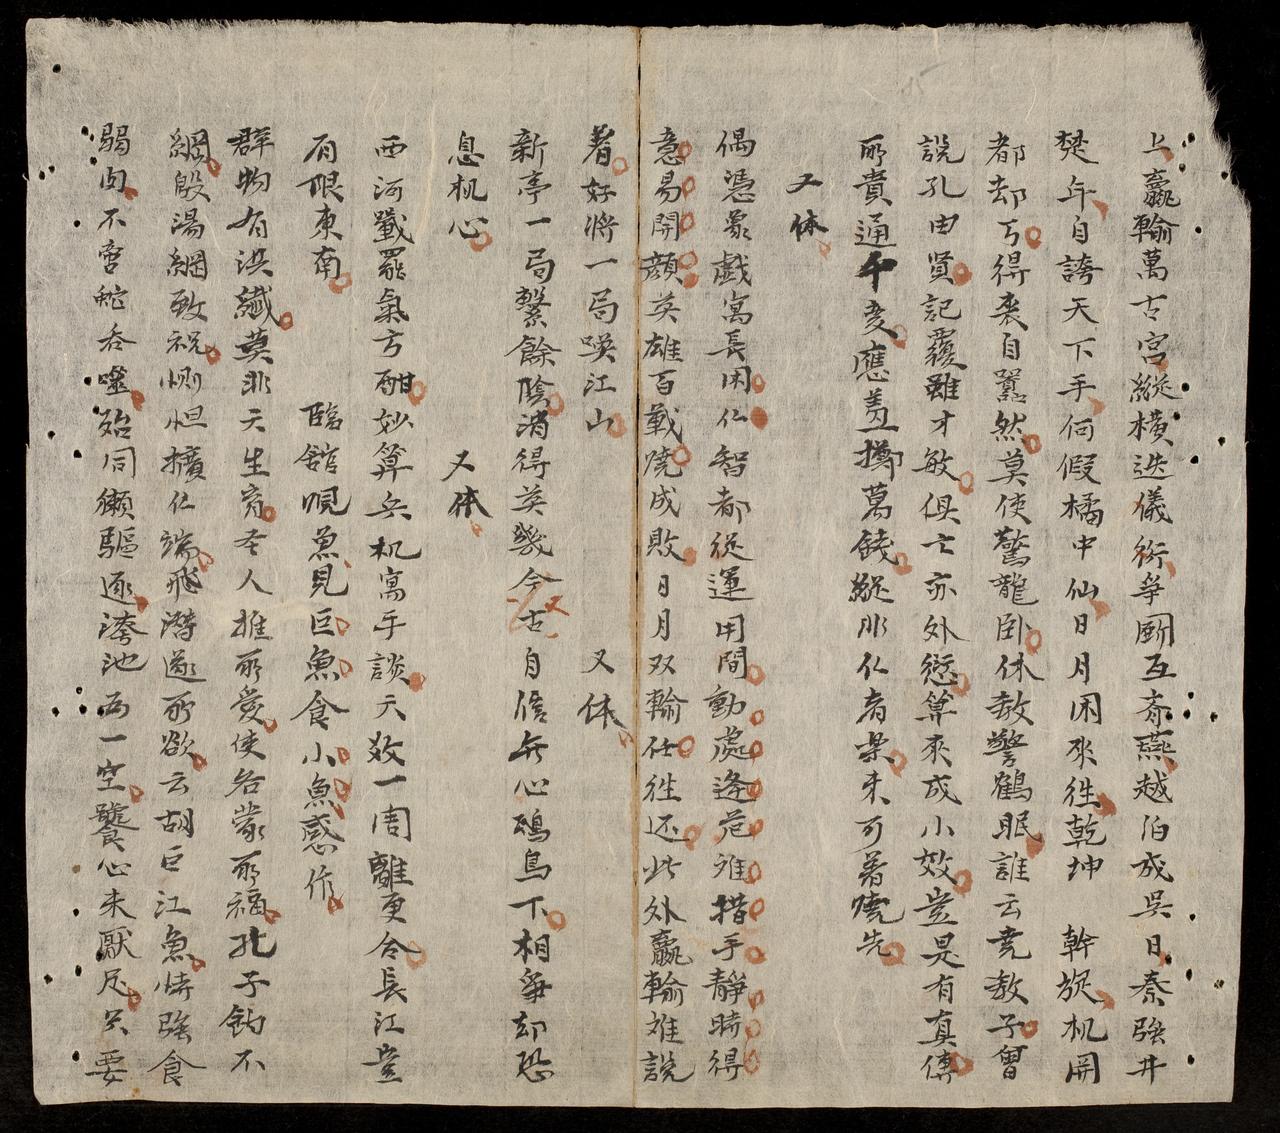 上贏輸萬古宮縱橫迭儀衍爭圖互齊燕越泊成吳日秦強井
楚年自誇天下手何假橘中仙日月閑來徃乾坤 幹旋机開
都却丂得裘自囂然莫使驚龍卧休教警鶴眠誰云堯教子曾
說孔由賢記覆雖才敏俱亡亦外愆算來成小效豈是有真傳
所貴通千变應羞擲萬錢縱非仁者樂未可著嘵先
又体
偶憑象戲寓長閑仁智都從運用間動處逢危难措手靜時得
意易開顔英雄百戰嘵成敗日月双輪任徃还此外贏輸难說
着好將一局暎江山 又体
新亭一局繫餘陰消得英幾今古自信無心鴟鳥下相爭却恐
息机心 又体
西河戰罷氣方酣妙算兵机寓手談天效一周離更合長江豈
有限東南 臨舘喚魚見巨魚食小魚感作
群物有洪纖莫非天生育圣人推所愛使各蒙所福孔子釣不
綱殷湯網致祝惻怛擴仁端飛潜遂所欲云胡巨江魚恃強食
弱肉不啻蛇吞噬殆同獺驅逐洿池為一空饕心未厭足只要